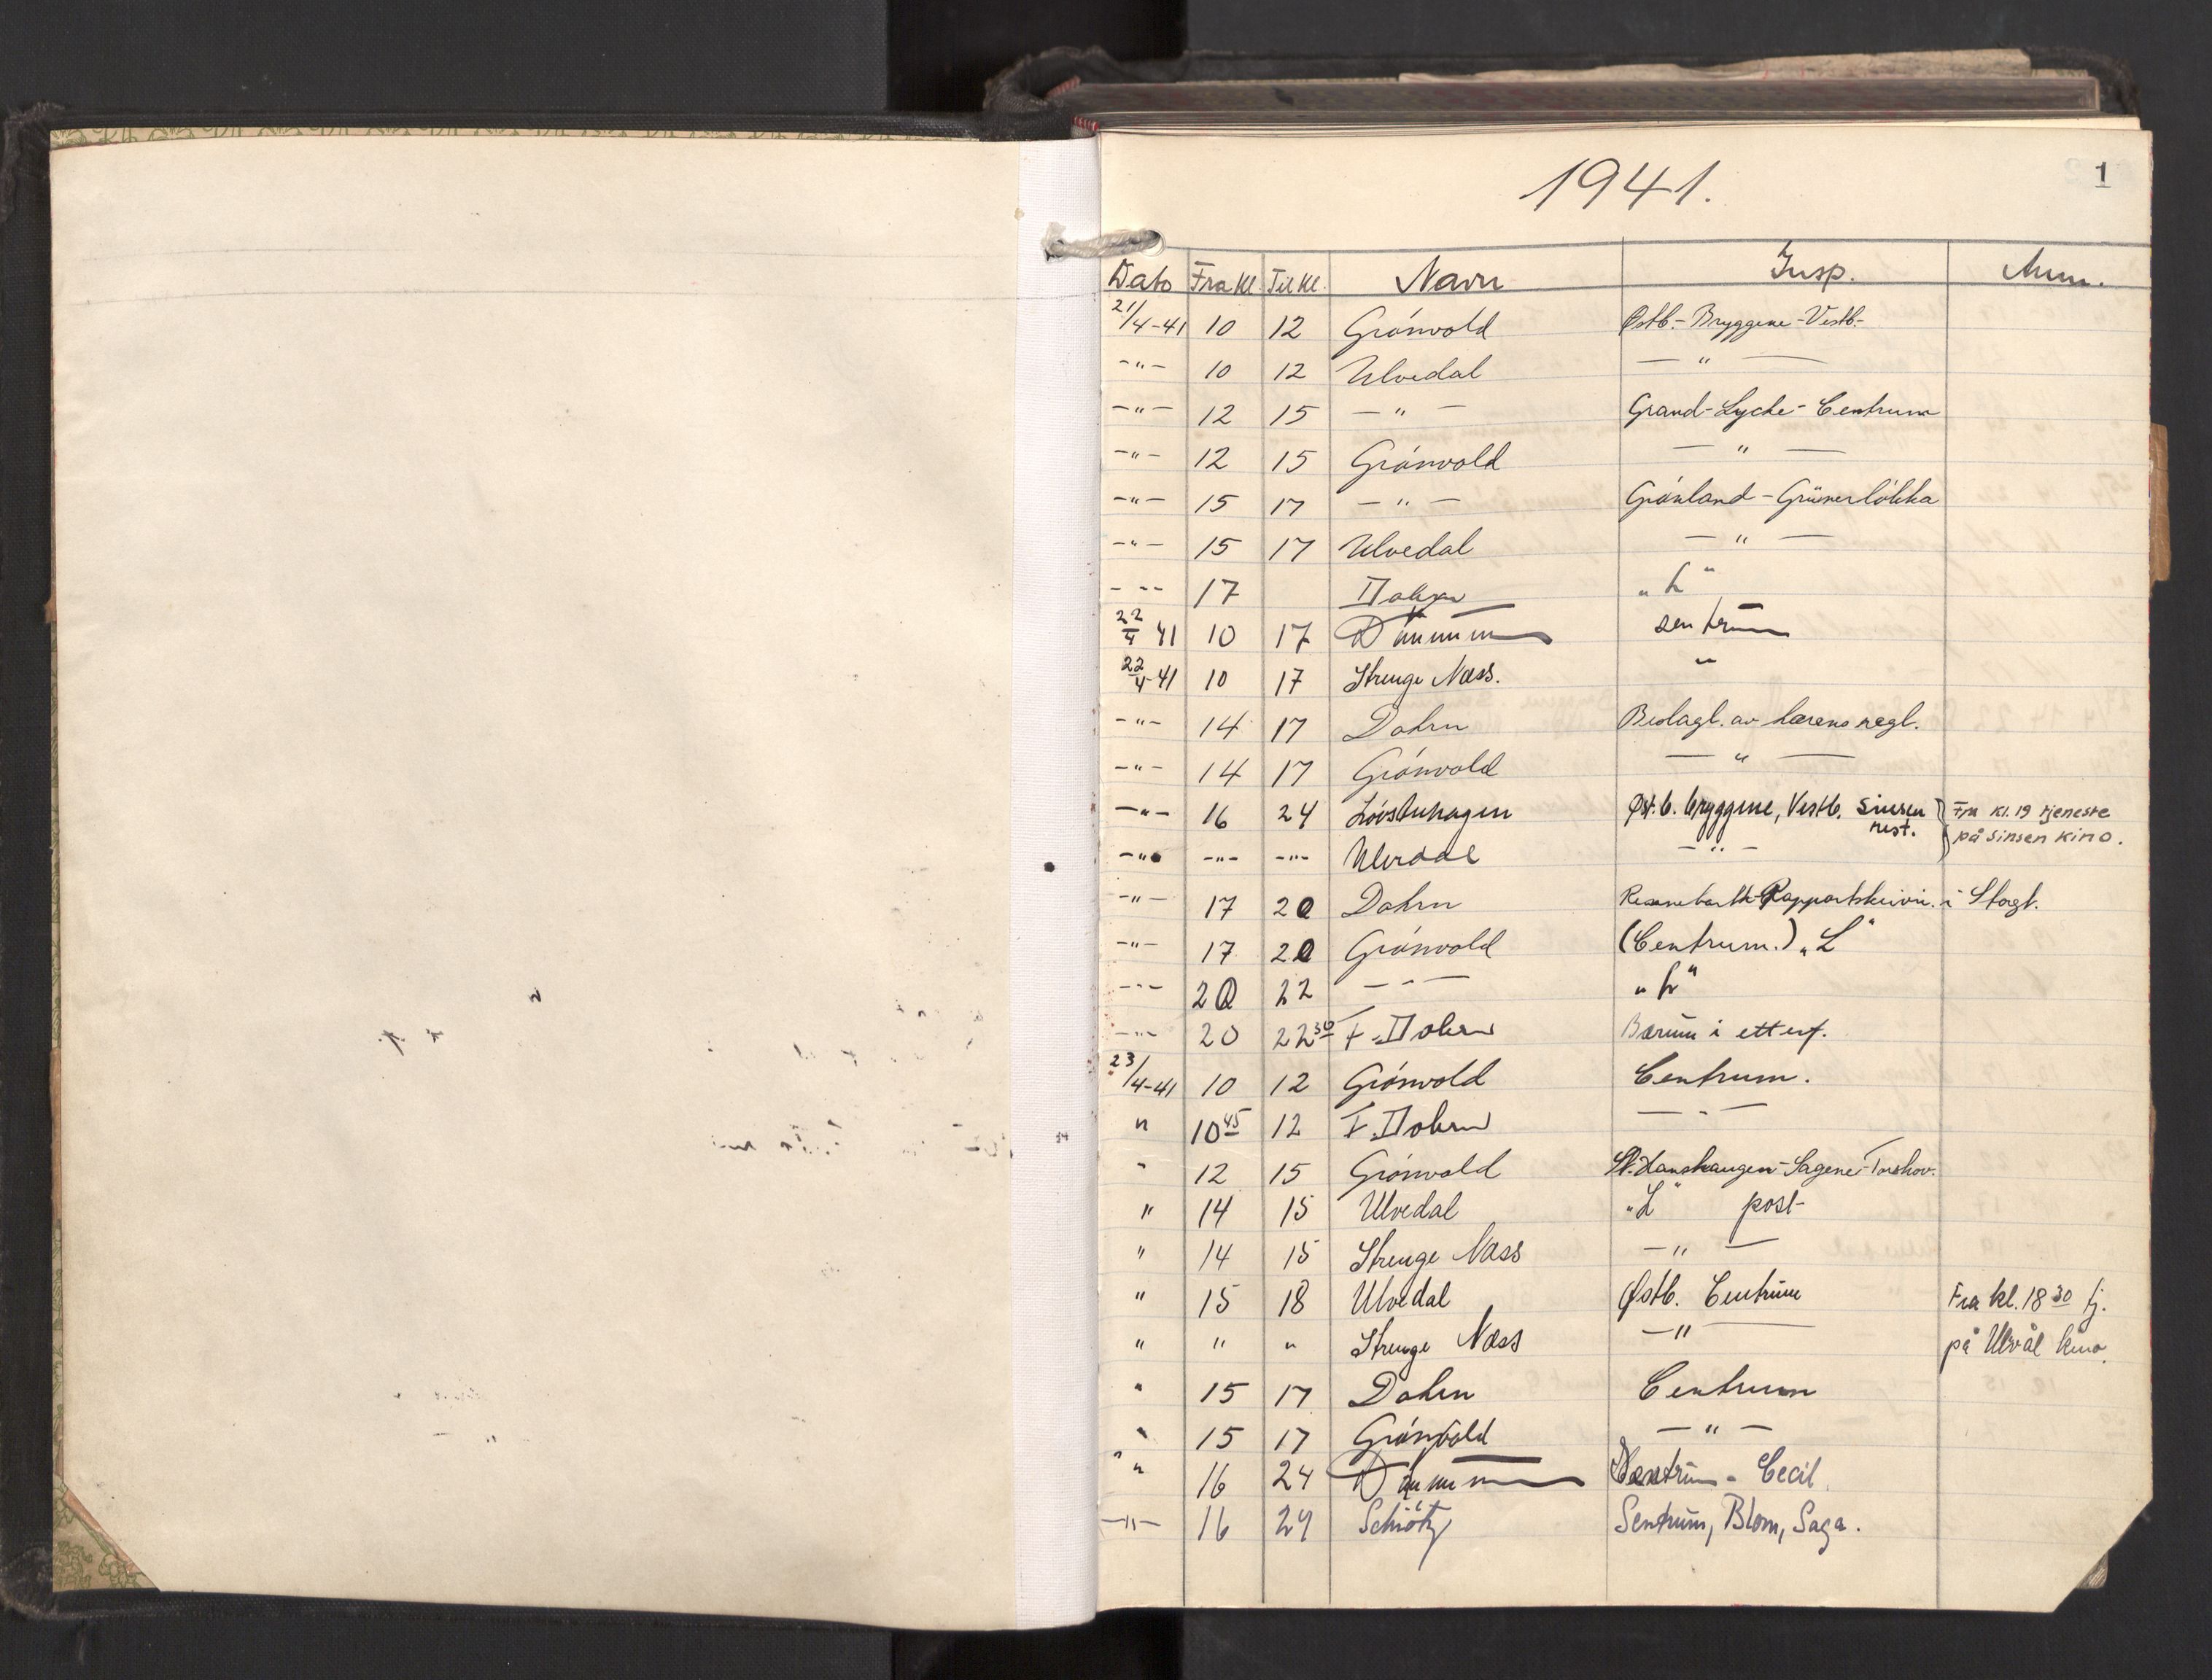 1
1941.
Dato Fra Kl. Til Kl. Navn Insp. Anm.
21/4-41 10 12 Grönvold Østb.- Bryggene - Vestb.-
-"- 10 12 Ulvedal -"-
-"- 12 15 -"- Grand-Lyche-Centrum
-"- 12 15 Grönvold -"-
-"- 15 17 -"- Grönland - Grünerlökka
-"- 15 17 Ulvedal -"-
-"- 17 Dahrn "L"
22/4 41 10 17 sentrum
22/4-41 10 17 Strenge Næss. "
-"- 14 17 Dahrn Beslagl. av hærens regl.
-"- 14 17 Grönvold -"-
-"- 16 24 Løvstuhagen Øst.b. bryggene, Vestb. Sinsen rest. } Fra kl. 19 tjeneste
på Sinsen kino.
-"- -"- -"- Ulvedal -"-
-"- 17 20 Dahrn Rapportskrivn. i Storgt.
-"- 17 20 Grönvold (Centrum.) "L"
-"- 20 22 -"- "L"
-"- 20 22 30 F. Dahrn Bærum i etterf.
23/4-41 10 12 Grönvold Centrum.
" 10 45 12 F. Dahrn -"-
" 12 15 Grönvold St. Hanshaugen - Sagene - Torshov.
" 14 15 Ulvedal "L" post
" 14 15 Strenge Næss -"-
" 15 18 Ulvedal Østb. Centrum Fra kl. 18 30 tj.
" " " Strenge Næss -"- på Ulvål kino.
" 15 17 Dahrn Centrum
" 15 17 Grönvold -"-
" 16 24 Sentrum - Cecil.
-"- 16 24 Schiötz Sentrum, Blom, Saga.